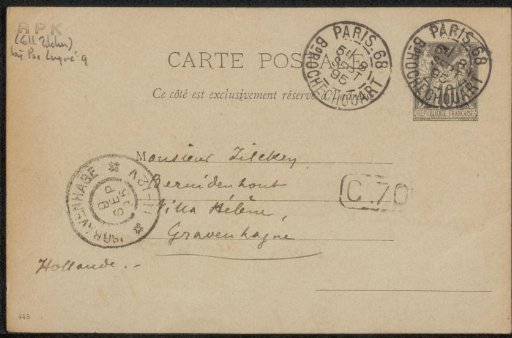 RPK
CARTE POSTALE
Ce côté est exclusivement réservé à l'adresse
PARIS_68
Bd ROCHECHOUART
95
PARIS_68
Bd ROCHECHOUART
10
REPUBLIQUE FRANÇAISE
Monsieur Zilcken
Bezuidenhout
Villa Hélène
Gravenhague
Hollande
C.70
'SGRAVENHAGE
11-12V
9
SEP
95
448